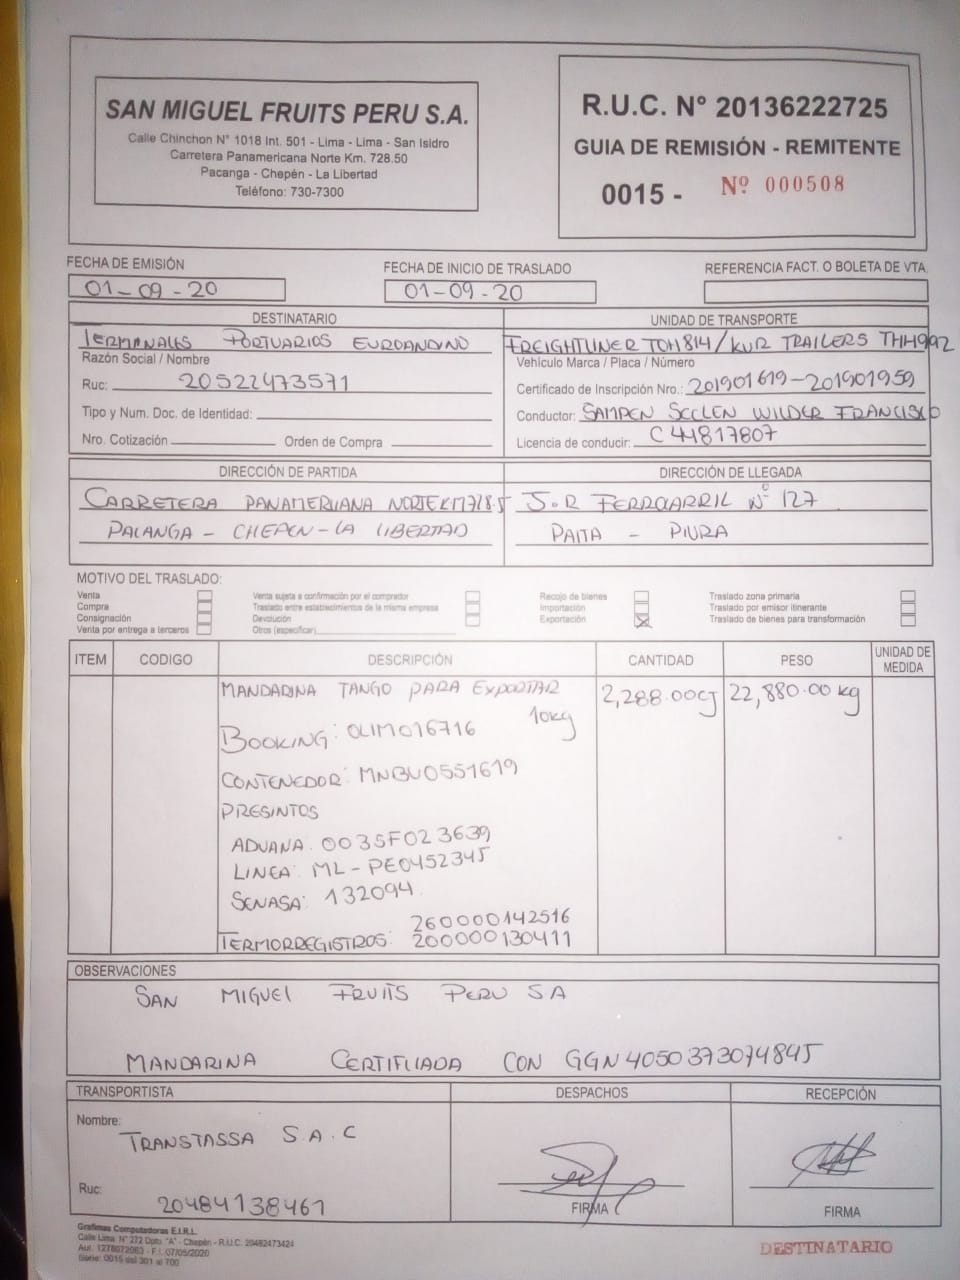 SAN MIGUEL FRUITS PERU S.A.
Calle Chinchon N° 1018 Int. 501 - Lima - Lima - San Isidro
Carretera Panamericana Norte Km. 728.50
Pacanga - Chepén - La Libertad
Teléfono: 730-7300
R.U.C. N° 20136222725
GUIA DE REMISIÓN - REMITENTE
0015 - Nº 000508
FECHA DE EMISIÓN
01-09-20
FECHA DE INICIO DE TRASLADO
01-09-20
REFERENCIA FACT. O BOLETA DE VTA.
DESTINATARIO
TERMINALES PORTUARIOS EUROANDINO
Razón Social / Nombre
Ruc: 20522473571
Tipo y Num. Doc. de Identidad:
Nro. Cotización Orden de Compra
UNIDAD DE TRANSPORTE
FREIGHTLINER TOH814/KUR TRAILERS THH992
Vehículo Marca / Placa / Número
Certificado de Inscripción Nro.: 201901619-201901959
Conductor: SAMPEN SECLEN WILDER FRANCISCO
Licencia de conducir: C44817807
DIRECCIÓN DE PARTIDA
CARRETERA PANAMERIANA NORTE KM728.5
PALANGA - CHEPEN - LA LIBERTAD
DIRECCIÓN DE LLEGADA
J.R FERROCARRIL N° 127
PAITA - PIURA
MOTIVO DEL TRASLADO:
Venta
Compra
Consignación
Venta por entrega a terceros
Venta sujeta a confirmación por el comprador
Traslado entre establecimientos de la misma empresa
Devolución
Otros (especificar)
Recojo de bienes
Importación
Exportación
Traslado zona primaria
Traslado por emisor itinerante
Traslado de bienes para transformación
ITEM CODIGO DESCRIPCIÓN CANTIDAD PESO UNIDAD DE MEDIDA
MANDARINA TANGO PARA EXPORTAR 2,288.00CJ 22,880.00 kg
10kg
BOOKING: OLIMO16716
CONTENEDOR: MNBU0551619
PRESINTOS
ADUANA: 0035F023639
LINEA: ML-PE0452345
SENASA: 132094
260000142516
TERMORREGISTROS: 200000130411
OBSERVACIONES
SAN MIGUEL FRUITS PERU SA
MANDARINA CERTIFICADA CON GGN 4050373074845
TRANSPORTISTA
Nombre:
TRANSTASSA S.A.C
Ruc:
20484138461
DESPACHOS
FIRMA
RECEPCIÓN
FIRMA
Grafimas Computadoras E.I.R.L.
Calle Lima N° 272 Dpto. "A" - Chepén - R.U.C. 20482473424
Aut. 1278072063 - F.I. 07/05/2020
Serie: 0015 del 301 al 700
DESTINATARIO